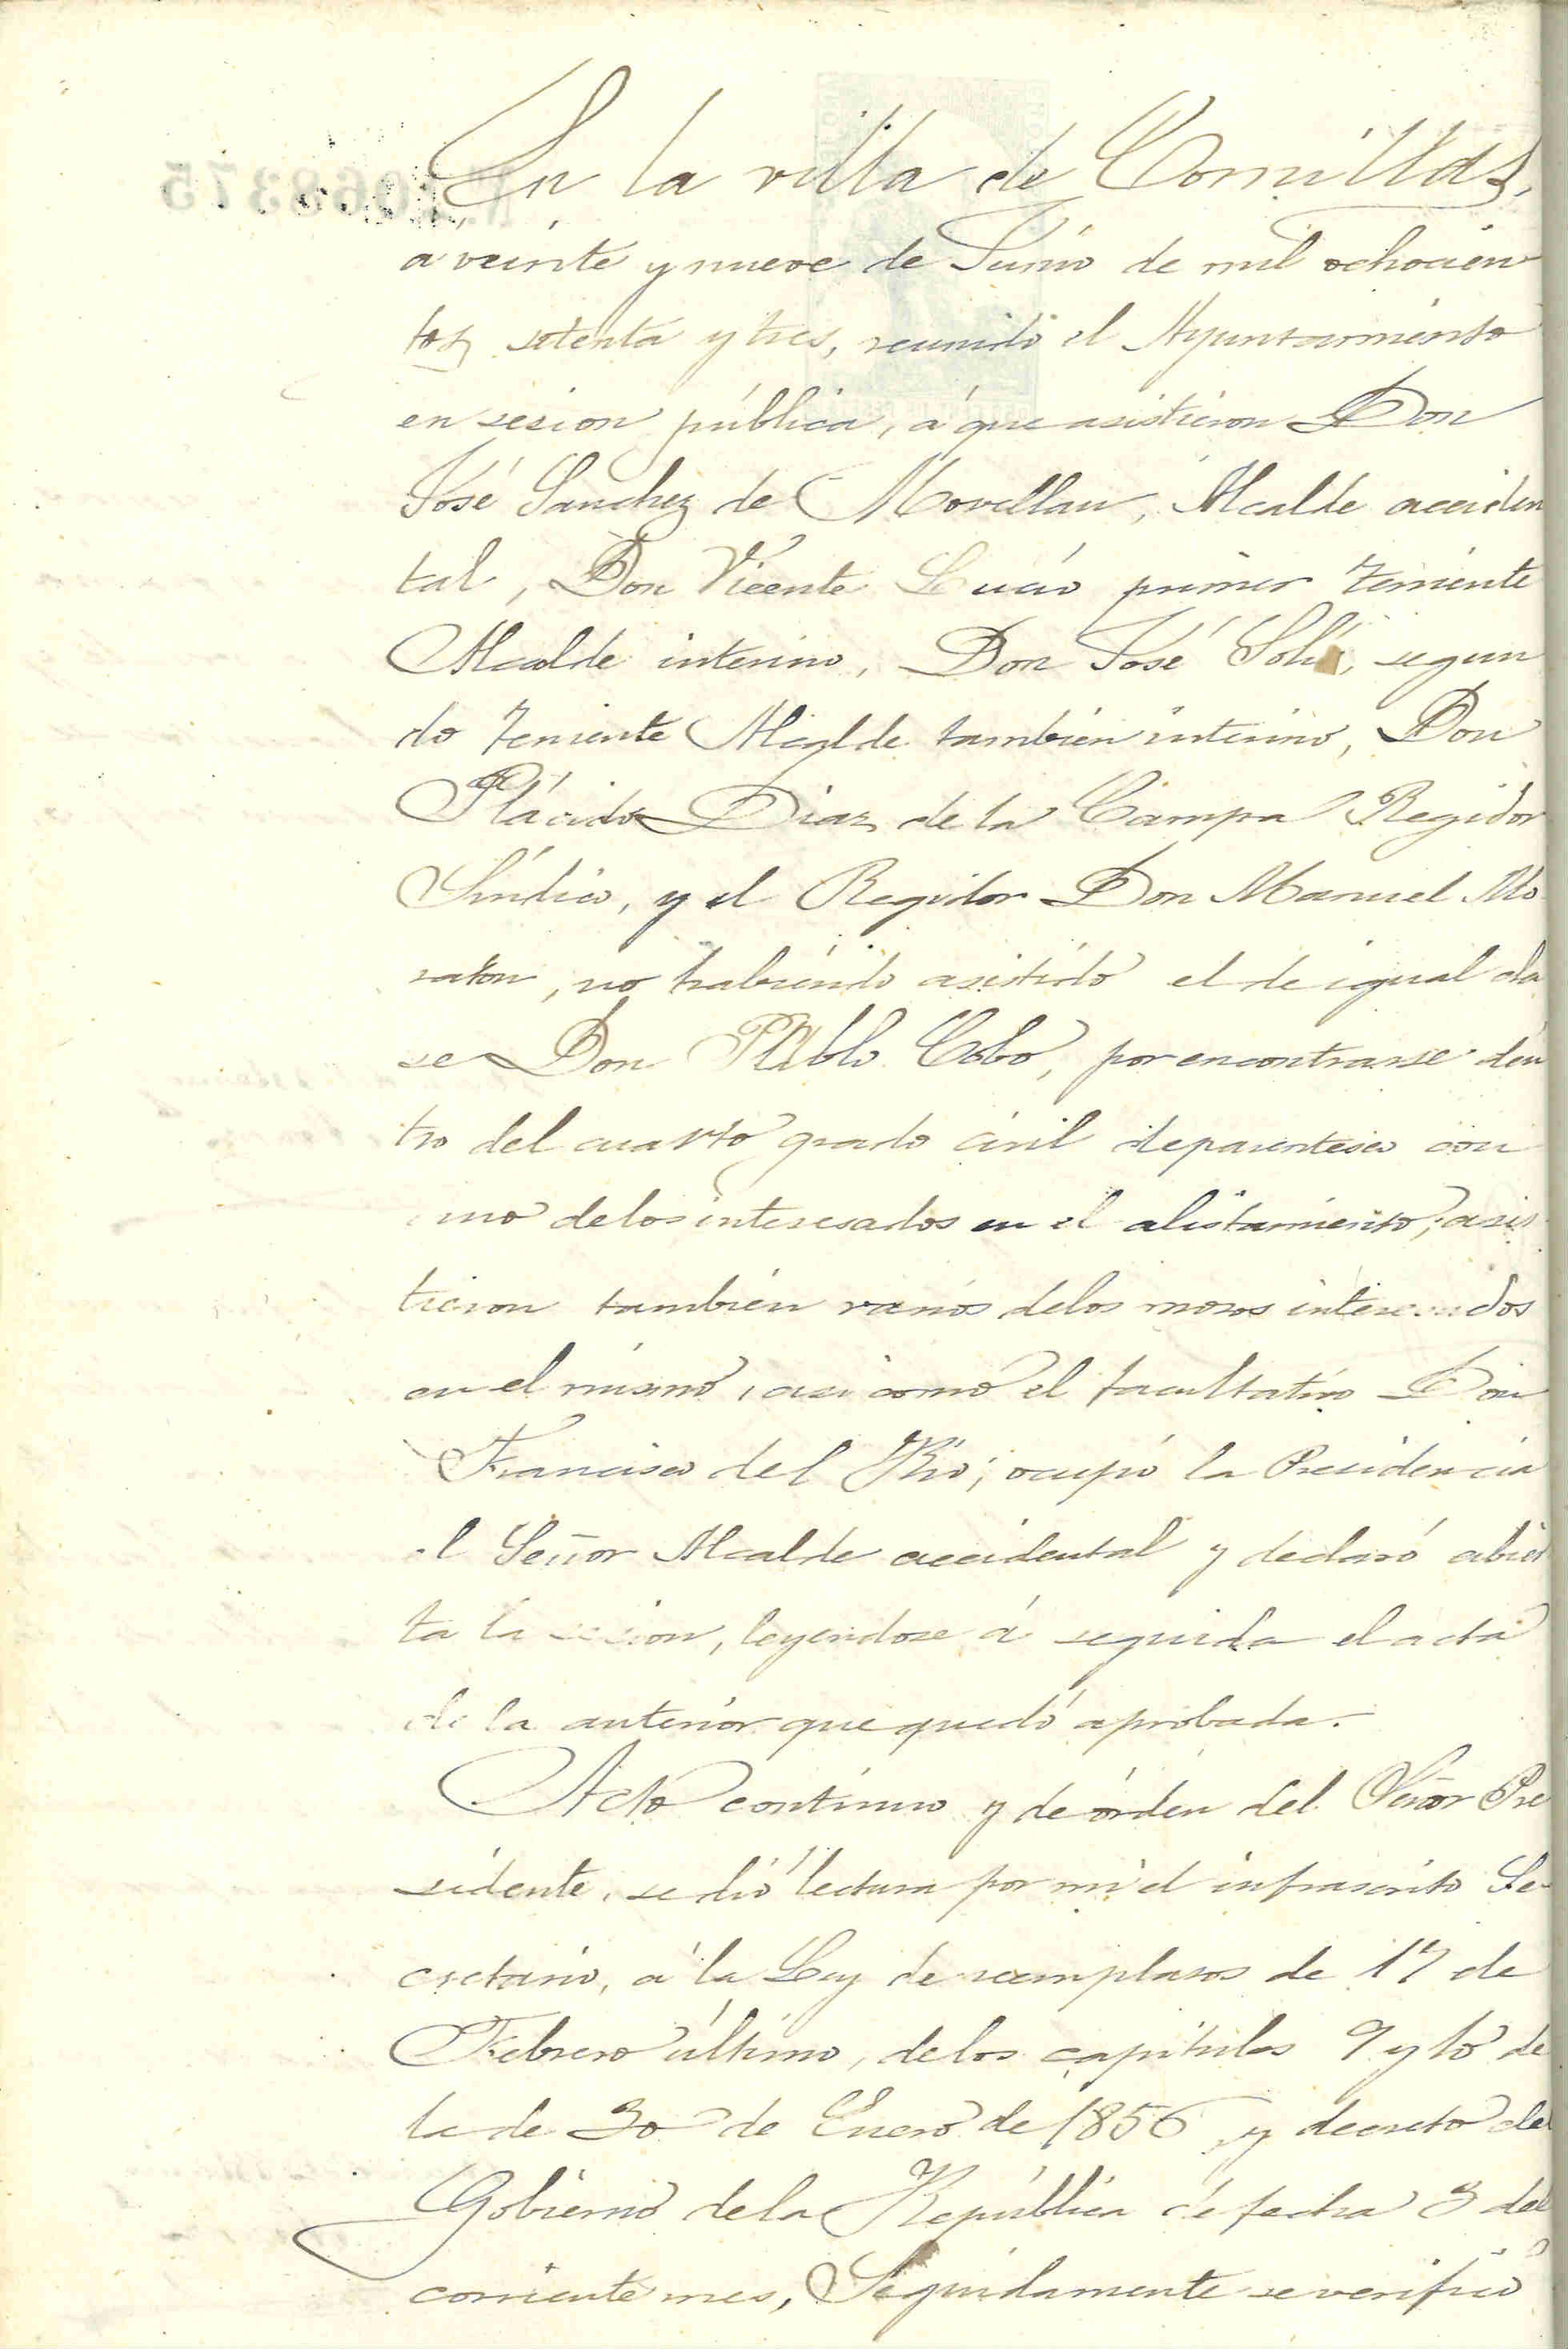 En la villa de Comillas,
a veinte y nueve de Junio de mil ochocien
tos setenta y tres, reunido el Ayuntamiento
en sesion pública, á que asistieron Don
José Sanchez de Movellan, Alcalde acciden
tal, Don Vicente Lucio primer teniente
Alcalde interino, Don José Solis, segun
do teniente Alcalde tambien interino, Don
Plácido Diaz de la Campa Regidor
Síndico, y el Regidor Don Manuel Mo
raton, no habiendo asistido el de igual cla
se Don Pablo Cobo, por encontrarse den
tro del cuarto grado civil de parentesco con
uno de los interesados en el alistamiento; asis
tieron tambien varios de los mozos interesados
en el mismo, asi como el facultativo Don
Francisco del Rio; ocupó la Presidencia
el Señor Alcalde accidental y declaró abier
ta la sesion, leyendose á seguida el acta
de la anterior que quedó aprobada.
Acto contínuo y de órden del Señor Pre
sidente, se dió lectura por mi el infrascrito Se-
cretario, á la Ley de reemplazos de 17 de
Febrero último, de los capítulos 9 y 10 de
la de 30 de Enero de 1856 y decreto del
Gobierno de la República de fecha 3 del
corriente mes, Seguidamente se verificó